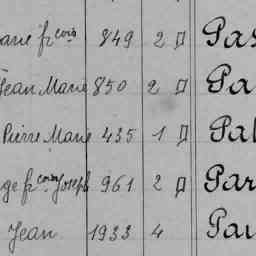 arie fcois 849 2 □ Pas
Jean Marie 850 2 □ Pa
Pierre Marie 435 1 □ Pal
ge fcois Joseph 961 2 □ Par
Jean 1933 4 Pau